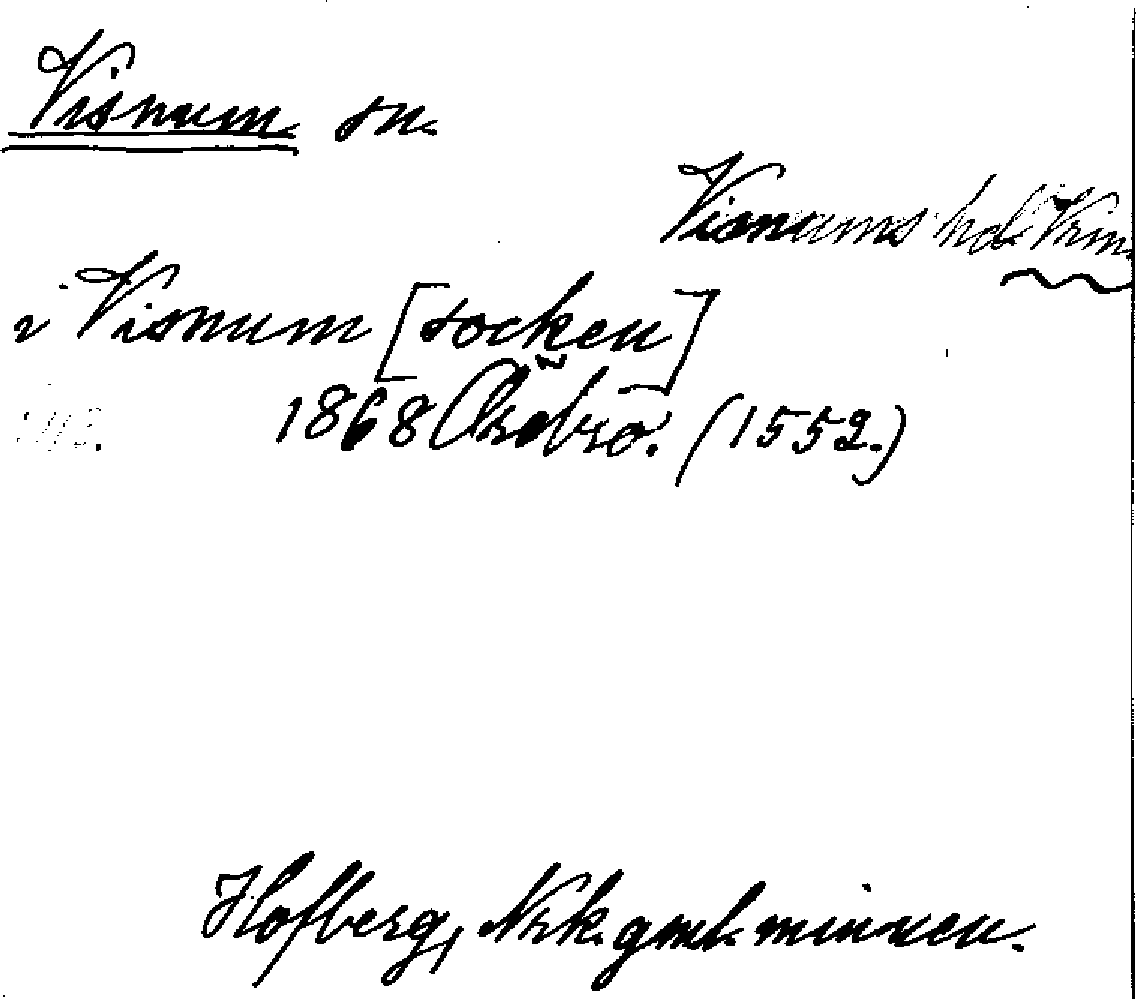 Visnum sn.
Visnums hd. Vrm.
i Visnum [socken]
1868 Örebro. (1552.)
Hofberg, Nrk. gmla minnen.